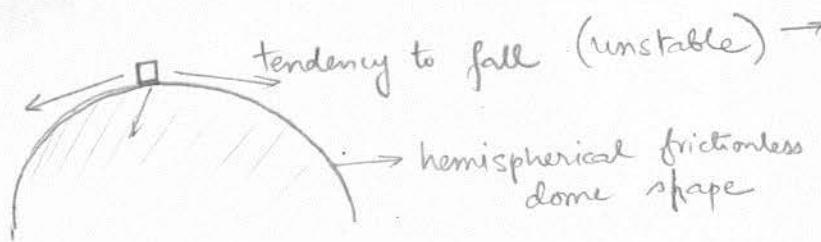 tendency to fall (unstable) →
hemispherical frictionless
dome shape